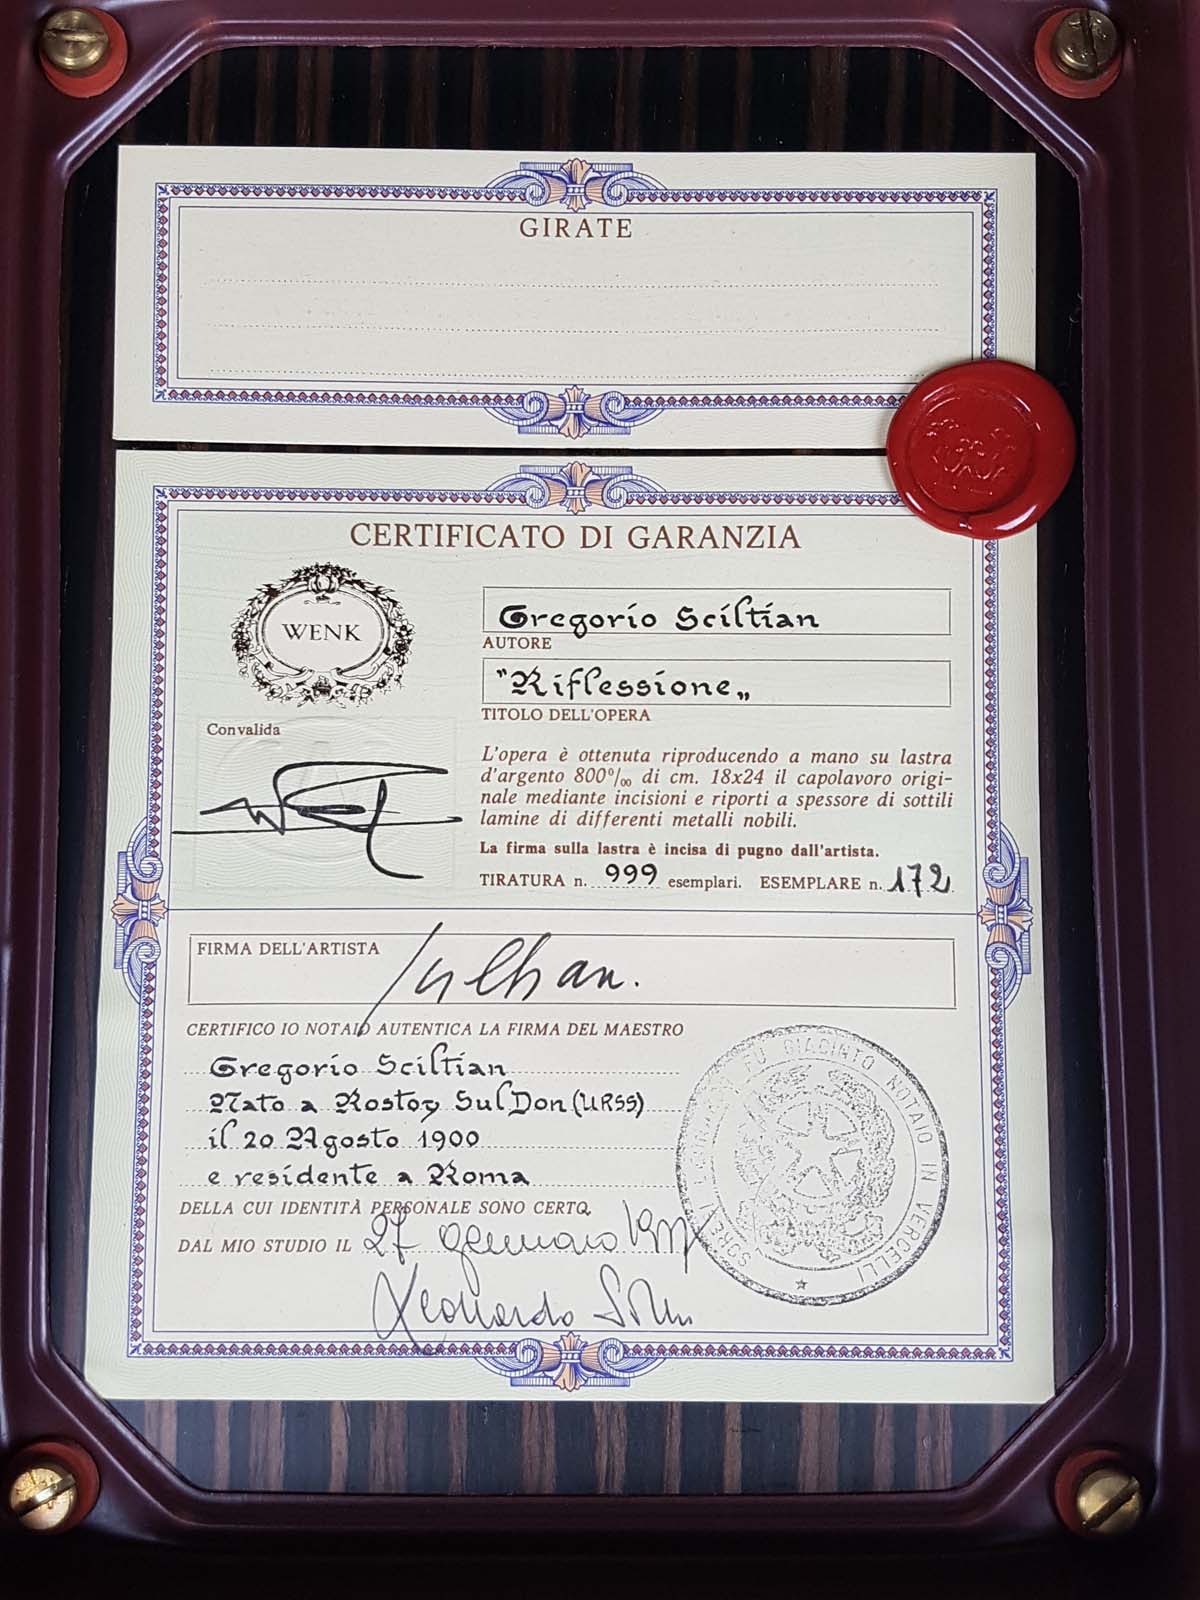 GIRATE
CERTIFICATO DI GARANZIA
WENK
Gregorio Sciltian
AUTORE
"Riflessione„
TITOLO DELL'OPERA
Convalida
L'opera è ottenuta riproducendo a mano su lastra
d'argento 800‰ di cm. 18x24 il capolavoro origi-
nale mediante incisioni e riporti a spessore di sottili
lamine di differenti metalli nobili.
La firma sulla lastra è incisa di pugno dall'artista.
TIRATURA n. 999 esemplari. ESEMPLARE n. 172
FIRMA DELL'ARTISTA
CERTIFICO IO NOTAIO AUTENTICA LA FIRMA DEL MAESTRO
Gregorio Sciltian
Nato a Rostov Sul Don (URSS)
il 20 Agosto 1900
e residente a Roma
DELLA CUI IDENTITÀ PERSONALE SONO CERTO.
DAL MIO STUDIO IL 27 gennaio
Leonardo
FU GIACINTO NOTAIO IN VERCELLI